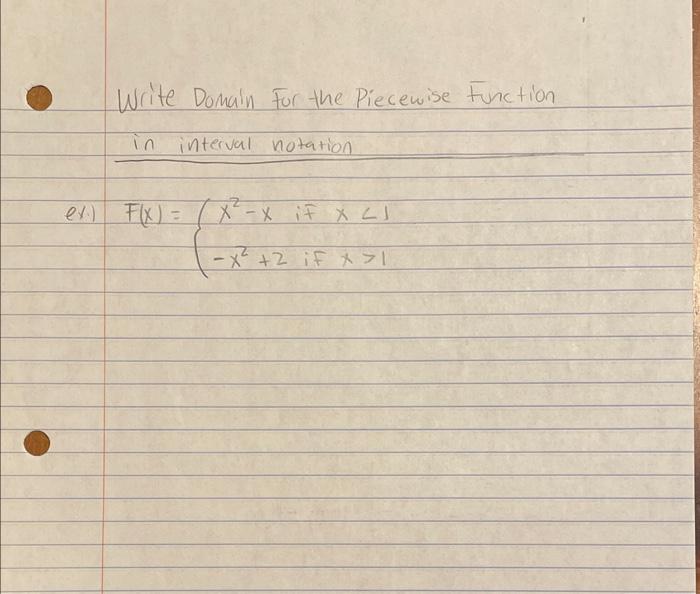 Write Domain For the Piecewise Function
in interval notation
ex.) F(x) = { x² - x if x < 1
-x² + 2 if x > 1